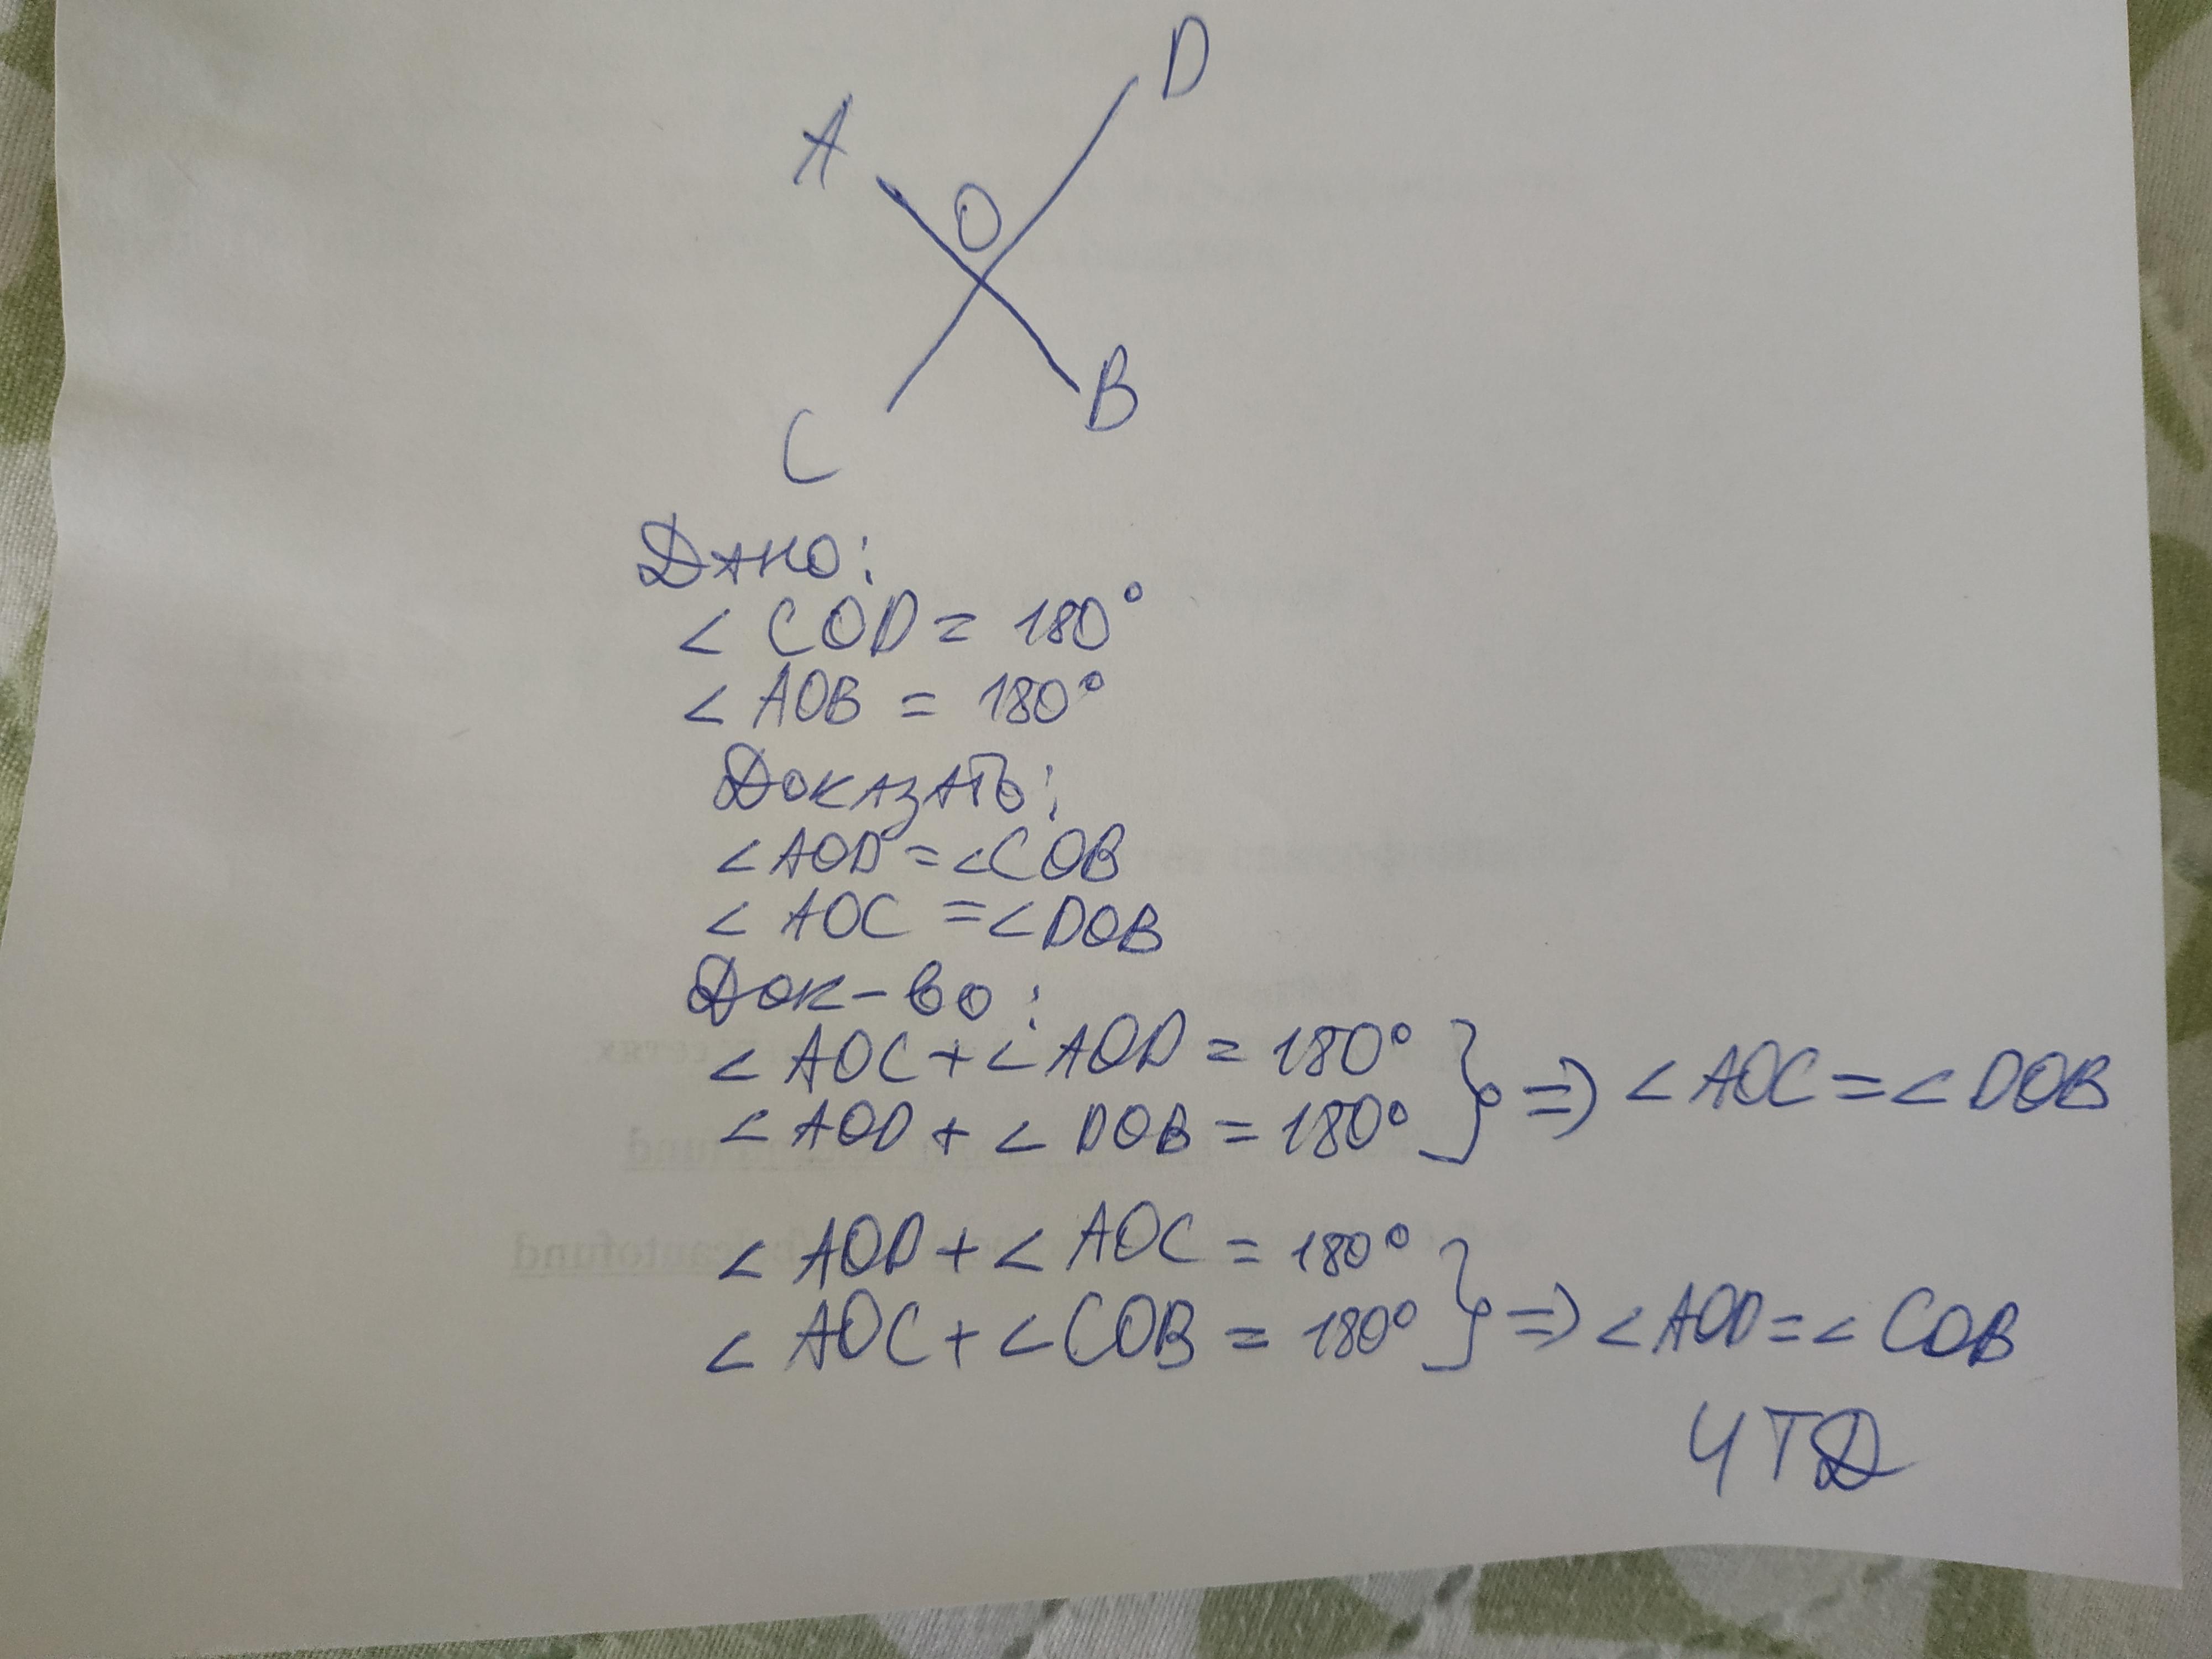 D
A
O
B
C
Дано:
∠ COD = 180°
∠ AOB = 180°
Доказать:
∠AOD = ∠COB
∠ AOC = ∠DOB
Док-во:
∠ AOC + ∠AOD = 180° } => ∠AOC = ∠DOB
∠ AOD + ∠ DOB = 180°
∠ AOD + ∠ AOC = 180° } => ∠AOD = ∠ COB
∠ AOC + ∠COB = 180°
ЧТД